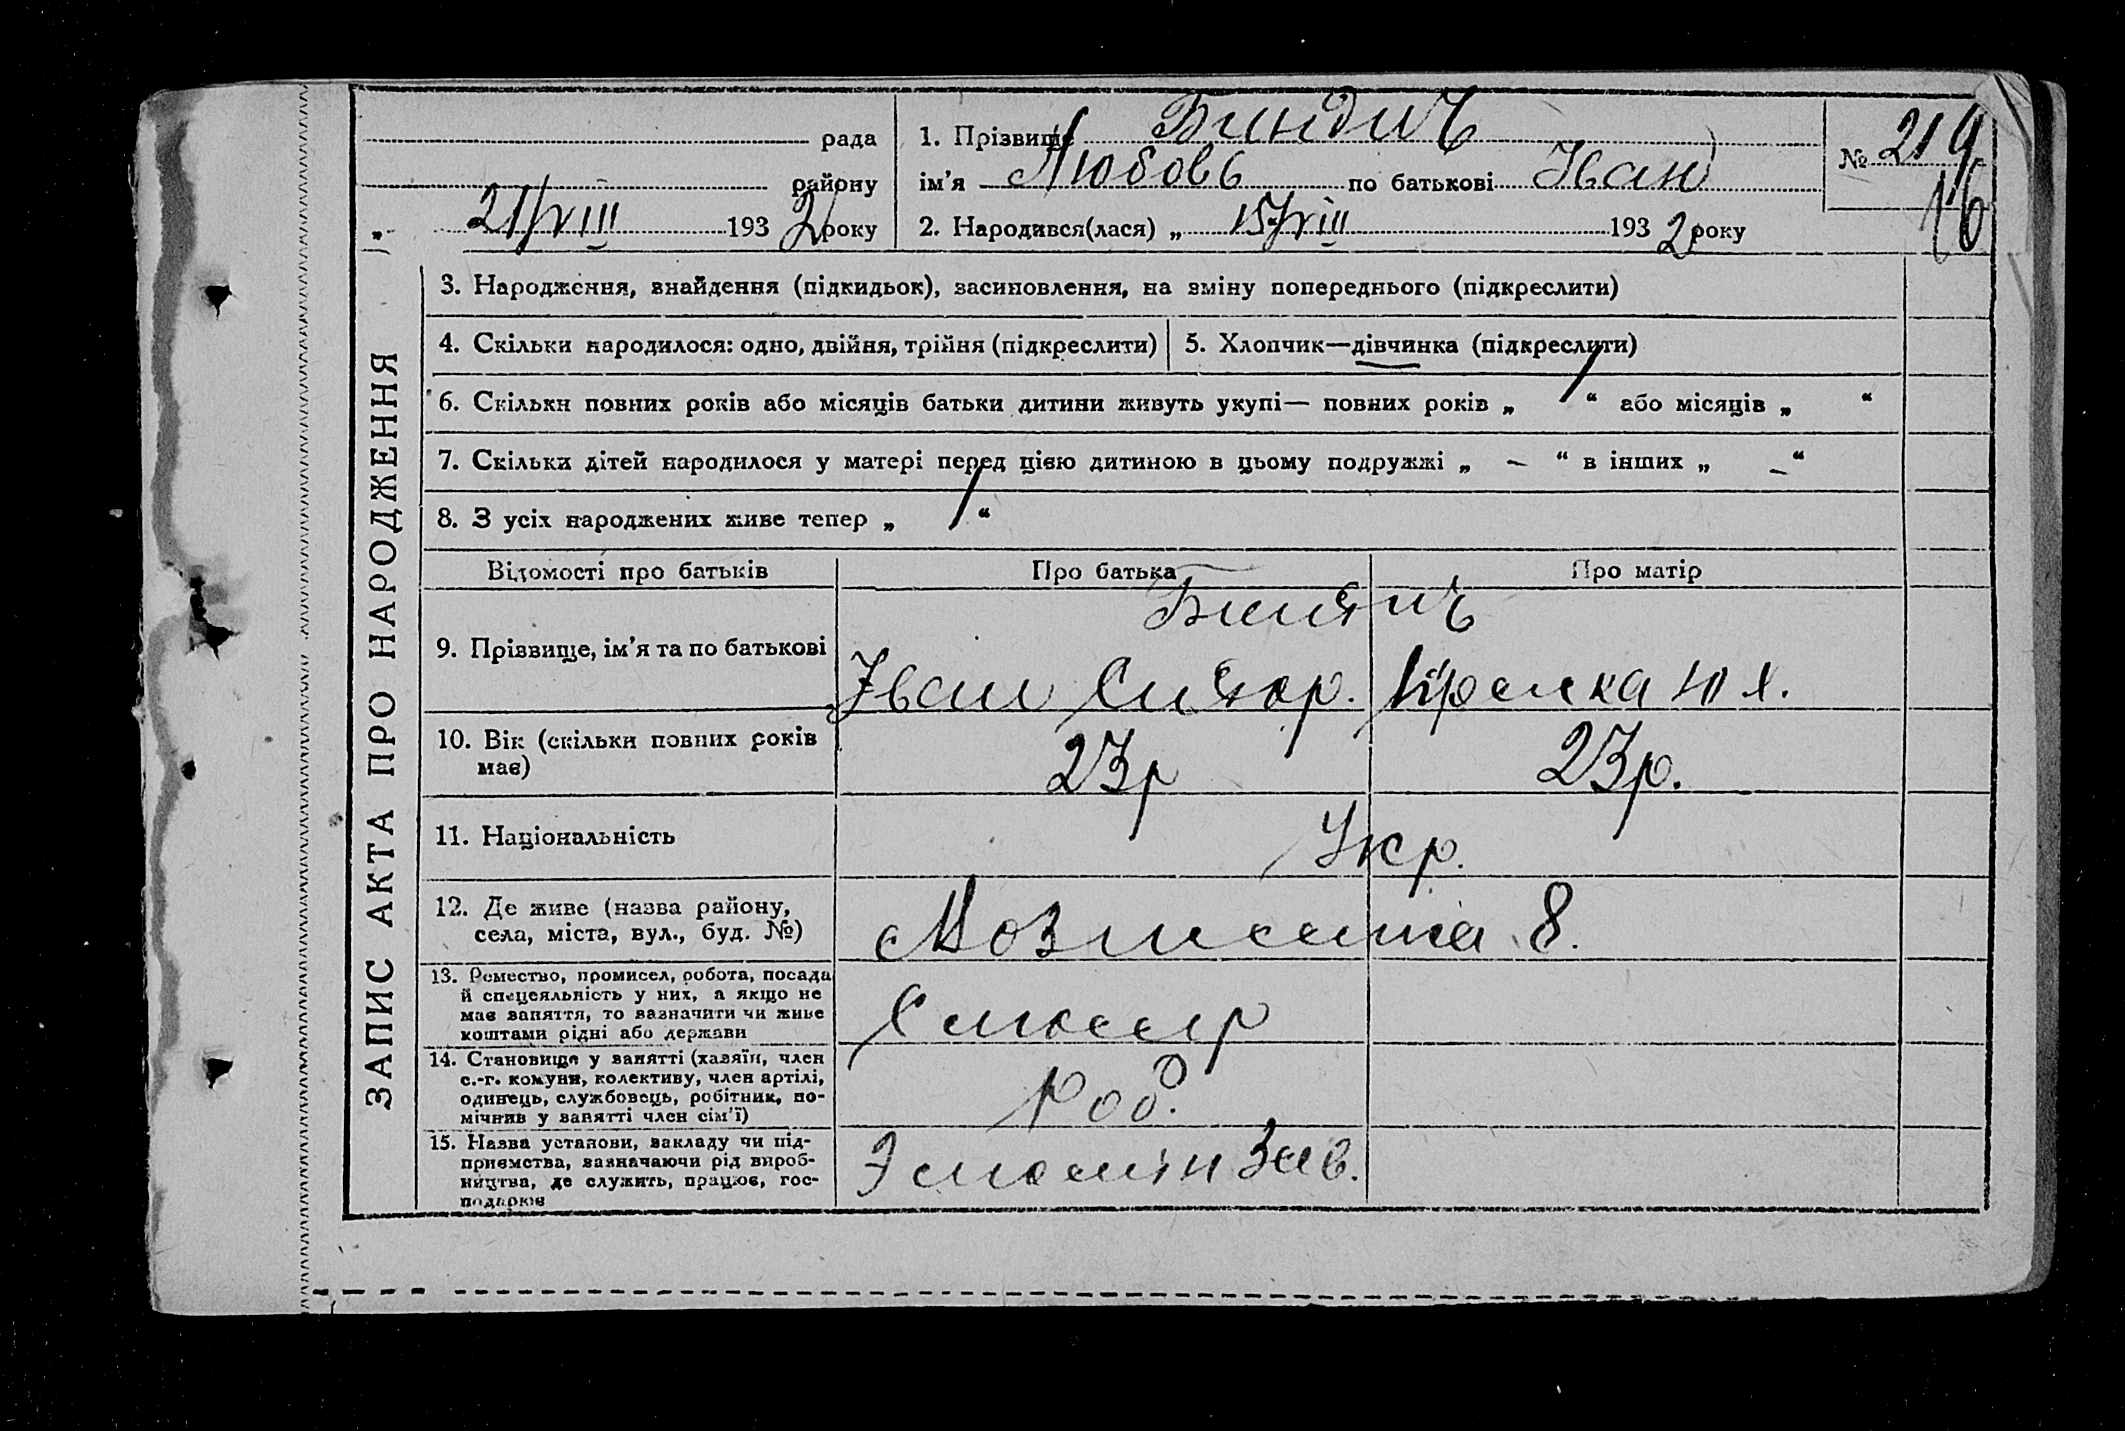 рада
району
„ 21/VIII 1932 року
1. Прізвище Биндич
ім’я Любовь по батькові Іван
2. Народився(лася) „ 15/VIII 1932 року
№ 219
16
ЗАПИС АКТА ПРО НАРОДЖЕННЯ
3. Народження, знайдення (підкидьок), засиновлення, на зміну попереднього (підкреслити)
4. Скільки народилося: одно, двійня, трійня (підкреслити) 5. Хлопчик—дівчинка (підкреслити)
6. Скільки повних років або місяців батьки дитини живуть укупі— повних років „ 1 “ або місяців „ “
7. Скільки дітей народилося у матері перед цією дитиною в цьому подружжі „ – “ в інших „ – “
8. З усіх народжених живе тепер „ 1 “
Відомості про батьків Про батька Про матір
9. Прізвище, ім’я та по батькові
Іван
10. Вік (скільки повних років
має)
23р 23р.
11. Національність Укр.
12. Де живе (назва району,
села, міста, вул., буд. №)
8.
13. Ремество, промисел, робота, посада
й спецеяльність у них, а якщо не
має заняття, то зазначити чи живе
коштами рідні або держави
14. Становище у занятті (хазяїн, член
с.-г. комуни, колективу, член артілі,
одинець, службовець, робітник, по-
мічник у занятті член сім’ї)
Роб.
15. Назва установи, закладу чи під-
приємства, зазначаючи рід вироб-
ництва, де служить, працює, гос-
подарює
Зав.